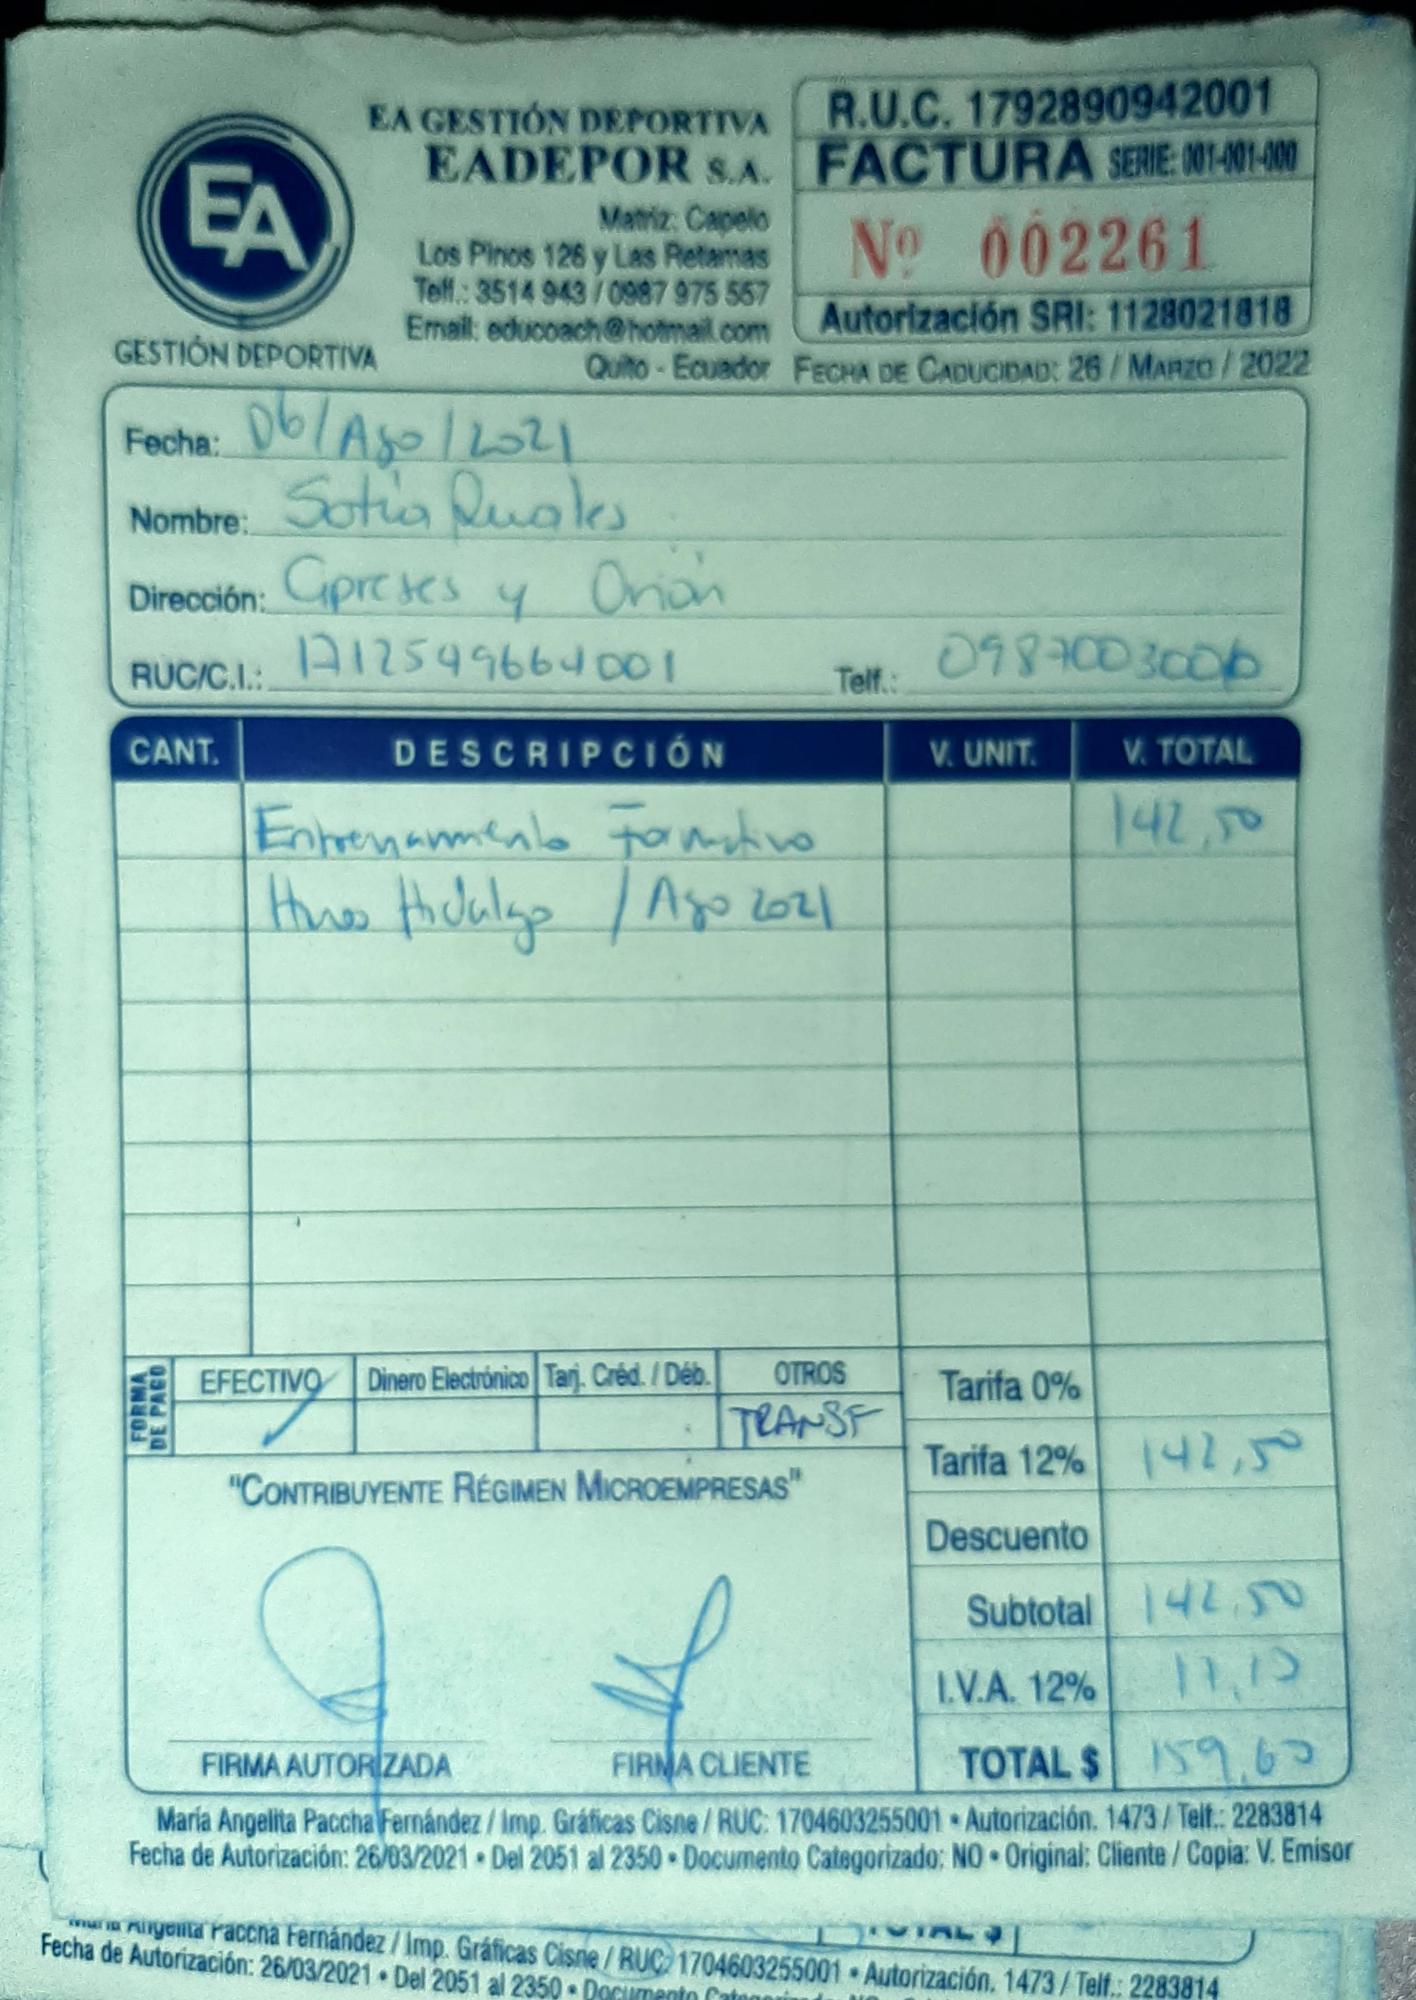 EA
GESTIÓN DEPORTIVA
EA GESTIÓN DEPORTIVA
EADEPOR S.A.
Matriz: Capelo
Los Pinos 126 y Las Retamas
Telf.: 3514 943 / 0987 975 557
Email: educoach@hotmail.com
Quito - Ecuador
R.U.C. 1792890942001
FACTURA SERIE: 001-001-000
Nº 002261
Autorización SRI: 1128021818
FECHA DE CADUCIDAD: 26 / MARZO / 2022
Fecha: 06/Ago/2021
Nombre: Sofía Ruales
Dirección: Cipreses y Orión
RUC/C.I.: 1712549664001 Telf.:
CANT. DESCRIPCIÓN V. UNIT. V. TOTAL
Entrenamiento Formativo 142,50
Hnos Hidalgo / Ago 2021
FORMA DE PAGO
EFECTIVO Dinero Electrónico Tarj. Créd. / Déb. OTROS
TRANSF
Tarifa 0%
Tarifa 12% 142,50
"CONTRIBUYENTE RÉGIMEN MICROEMPRESAS"
Descuento
Subtotal 142,50
I.V.A. 12% 17,10
TOTAL $ 159,60
FIRMA AUTORIZADA FIRMA CLIENTE
María Angelita Paccha Fernández / Imp. Gráficas Cisne / RUC: 1704603255001 • Autorización. 1473 / Telf.: 2283814
Fecha de Autorización: 26/03/2021 • Del 2051 al 2350 • Documento Categorizado: NO • Original: Cliente / Copia: V. Emisor
TOTAL $
María Angelita Paccha Fernández / Imp. Gráficas Cisne / RUC: 1704603255001 • Autorización. 1473 / Telf.: 2283814
Fecha de Autorización: 26/03/2021 • Del 2051 al 2350 • Documento